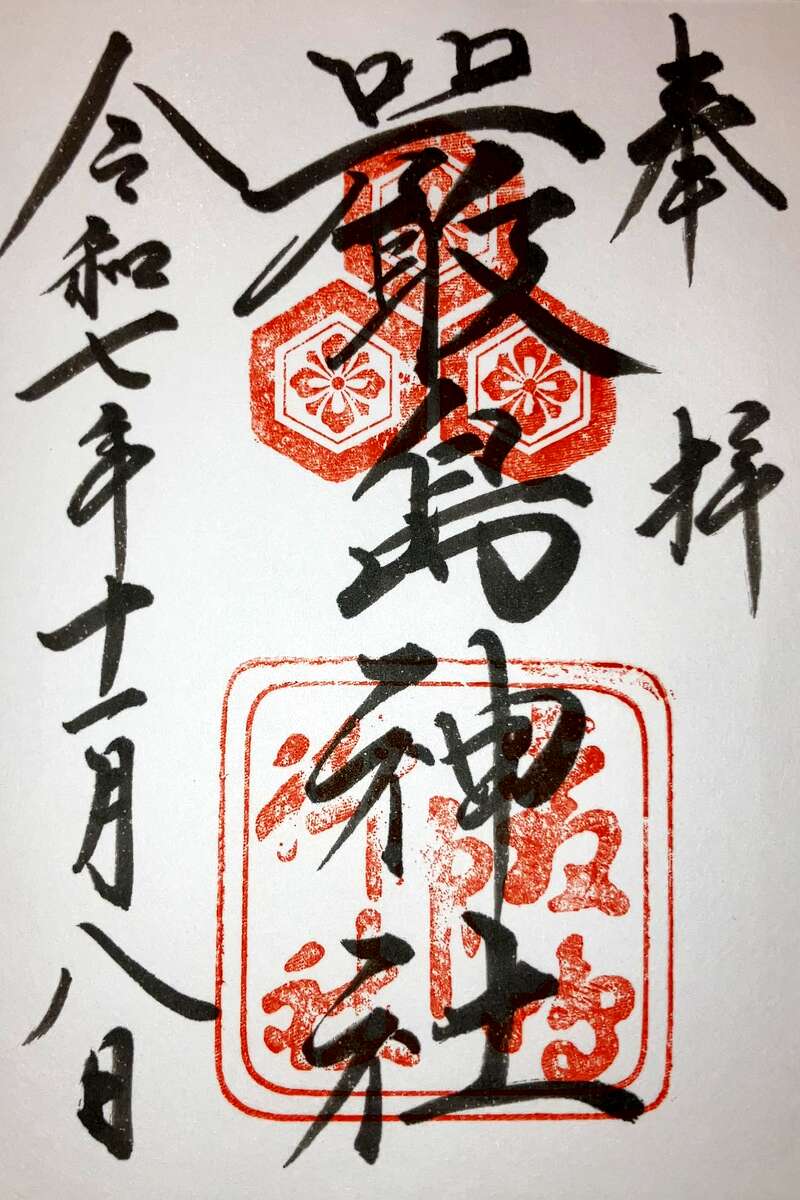 奉拝
嚴島神社
令和七年十一月八日